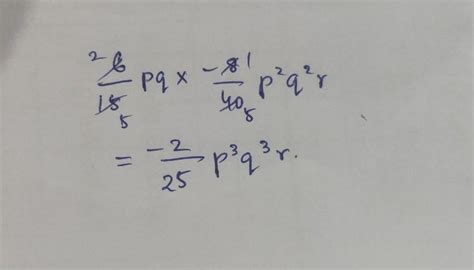 2 6/15 5 pq × -8 1/40 5 p²q²r
= -2/25 p³q³r.